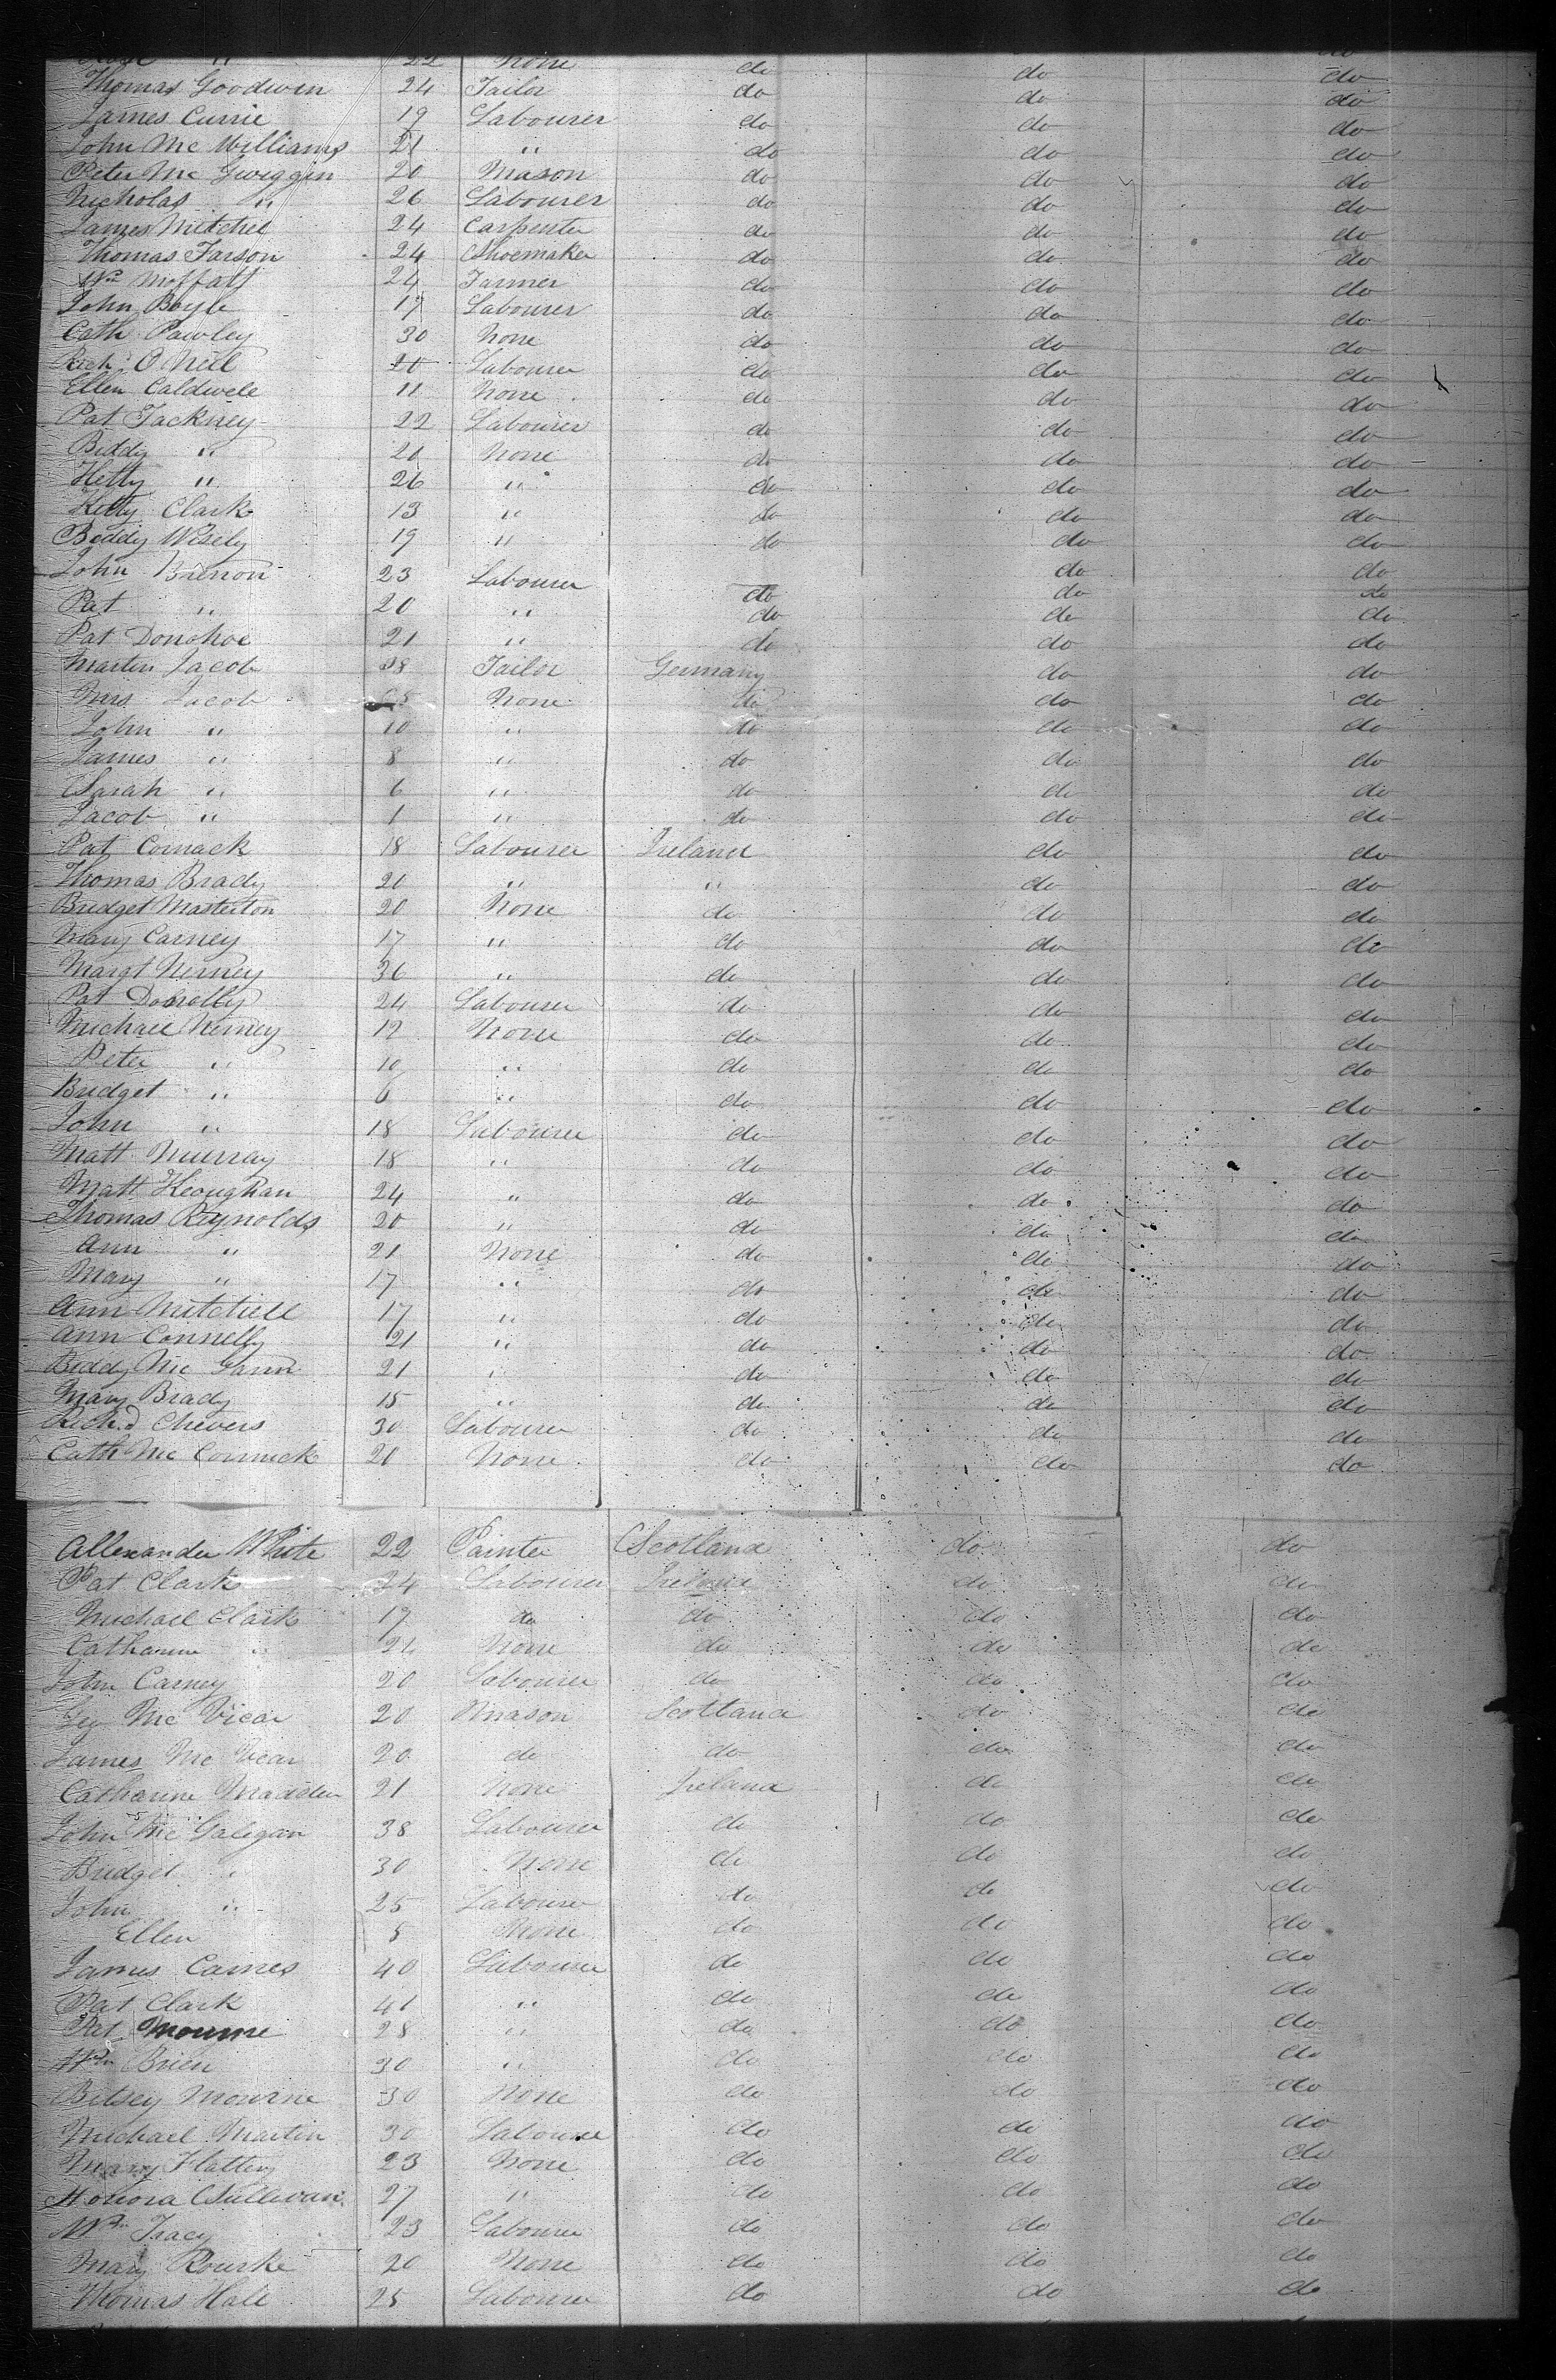 22 None do do do
Thomas Goodwin 24 Tailor do do do
James Currie 19 Labourer do do do
John Mc Williams 21 " do do do
Peter Mc Gwiggin 20 Mason do do do
Nicholas " 26 Labourer do do do
James Mitchel 24 Carpenter do do do
Thomas Farson 24 Shoemaker do do do
Wm Moffatt 24 Farmer do do do
John Boyle 17 Labourer do do do
Cath Pawley 30 None do do do
Richd O Neill 20 Labourer do do do
Ellen Caldwell 11 None do do do
Pat Fackney 22 Labourer do do do
Biddy " 20 None do do do
Hetty " 26 " do do do
Kitty Clark 13 " do do do
Biddy Wisely 19 " do do do
John Brenon 23 Labourer do do do
Pat " 20 " do do do
Pat Donohoe 21 " do do do
Martin Jacob 38 Tailor Germany do do
Mrs Jacob None do do do
John " 10 " do do do
James " 8 " do do do
Sarah " 6 " do do do
Jacob " 1 " do do do
Pat Cormack 18 Labourer Ireland do do
Thomas Brady 20 " " do do
Bridget Masterton 20 None do do do
Mary Carney 17 " do do do
Margt Nerney 36 " do do do
Pat Donolly 24 Labourer do do do
Michael Nerney 12 None do do do
Peter " 10 " do do do
Bridget " 6 " do do do
John " 18 Labourer do do do
Matt Murray 18 " do do do
Matt Keoughan 24 " do do do
Thomas Reynolds 20 " do do do
Ann " 21 None do do do
Mary " 17 " do do do
Ann Mitchell 17 " do do do
Ann Connelly 21 " do do do
Biddy Mc Gann 21 " do do do
Mary Brady 15 " do do do
Richd Chevers 30 Labourer do do do
Cath Mc Cormick 20 None do do do
Allexander White 22 Painter Scotland do do
Pat Clark 24 Labourer Ireland do do
Michael Clark 17 do do do do
Catharine " 24 None do do do
John Carney 20 Labourer do do do
Mc Vicar 20 Mason Scotland do do
James Mc Vicar 20 do do do do
Catharine Madden 21 None Ireland do do
John Mc Galegan 38 Labourer do do do
Bridget " 30 None do do do
John " 25 Labourer do do do
Ellen 5 None do do do
James Carnes 40 Labourer do do do
Pat Clark 41 " do do do
Pat Mourne 28 " do do do
Wm Brien 30 " do do do
Betsey Mourne 30 None do do do
Michael Martin 30 Labourer do do do
Mary Flattery 23 None do do do
Honora Sullivan 27 " do do do
Wm Tracy 23 Labourer do do do
Mary Rourke 20 None do do do
Thomas Hall 25 Labourer do do do